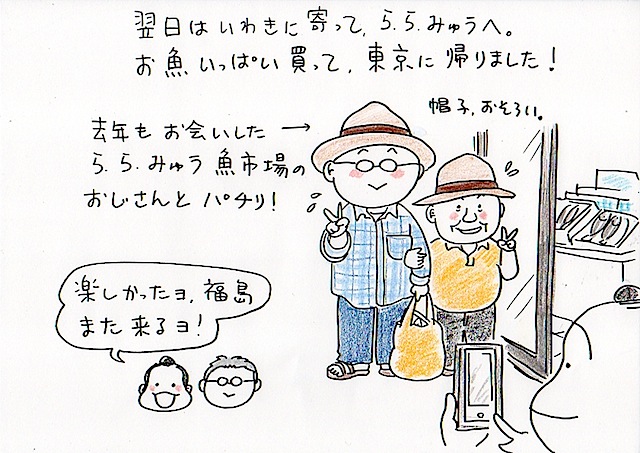 翌日はいわきに寄って、ら.ら.みゅうへ。
お魚いっぱい買って、東京に帰りました!
帽子、おそろい。
去年もお会いした →
ら.ら.みゅう魚市場の
おじさんとパチリ!
楽しかったヨ、福島
また来るヨ!